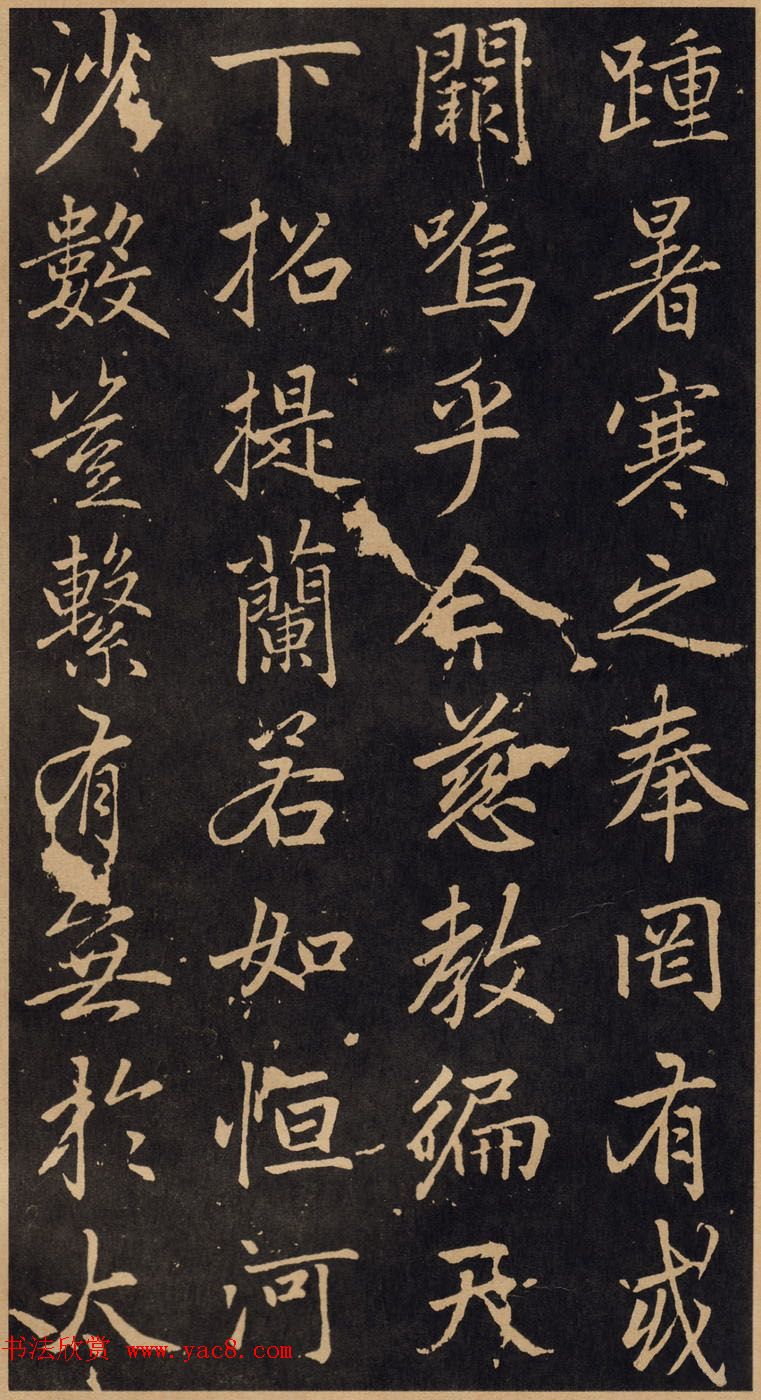 踵暑寒之奉罔有或
闕嗚乎今慈教徧天
下招提蘭若如恒河
沙數豈繫有無於大
书法欣赏 www.yac8.com